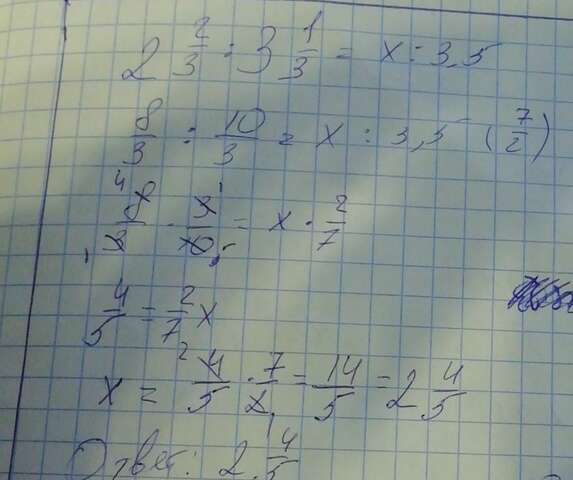 2 2/3 : 3 1/3 = x : 3,5
8/3 : 10/3 = x : 3,5 (7/2)
8/3 · 3/10 = x · 2/7
4/5 = 2/7 x
x = 4/5 · 7/2 = 14/5 = 2 4/5
Ответ: 2 4/5